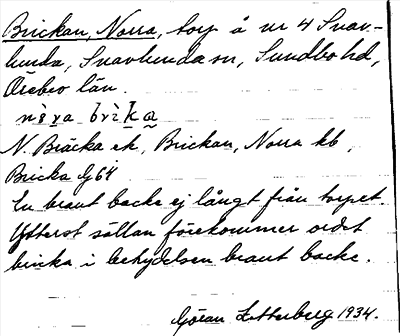 Brickan, Norra, torp å nr 4 Snav-
lunda, Snavlunda sn, Sundbo hd,
Örebro län.
nòra brìka
N. Bräcka ek, Brickan, Norra kb,
Bricka G 64
En brant backe ej långt från torpet.
Ytterst sällan förekommer ordet
bricka i betydelsen brant backe.
Göran Zetterberg 1934.